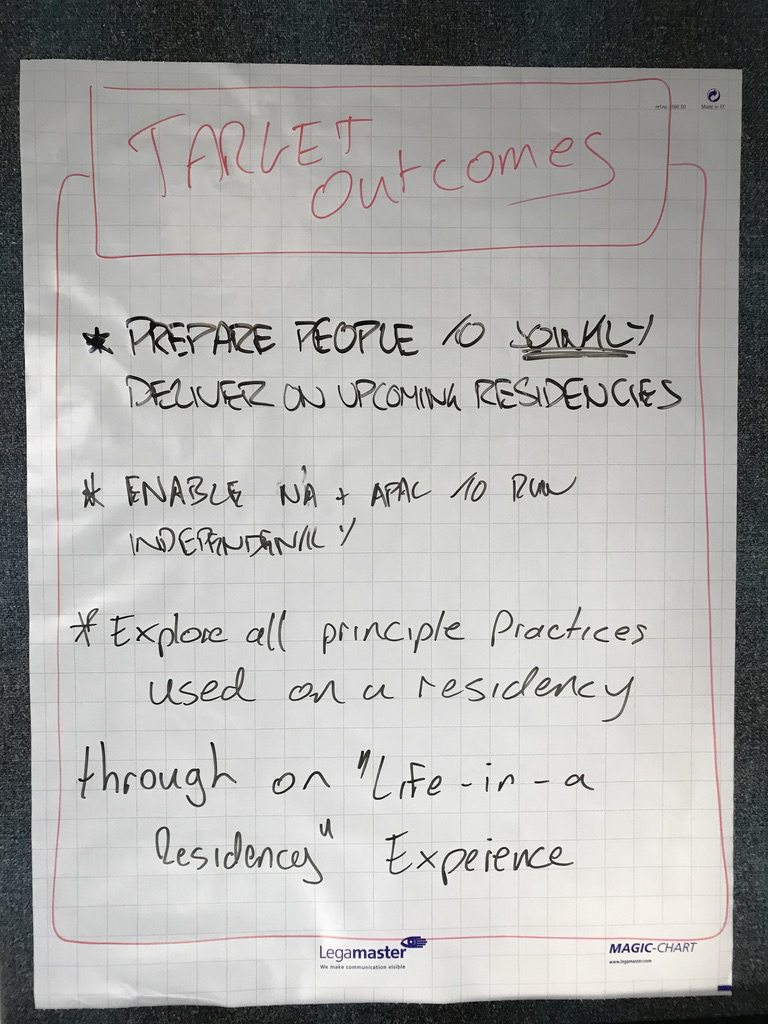 Made in EU
TARGET
OUTCOMES
* PREPARE PEOPLE TO JOINTLY
DELIVER ON UPCOMING RESIDENCIES
* ENABLE NA + APAC TO RUN
INDEPENDENTLY
* Explore all principle Practices
used on a residency
through on "Life-in-a
Residency" Experience
Legamaster
We make communication visible
MAGIC-CHART
www.legamaster.com